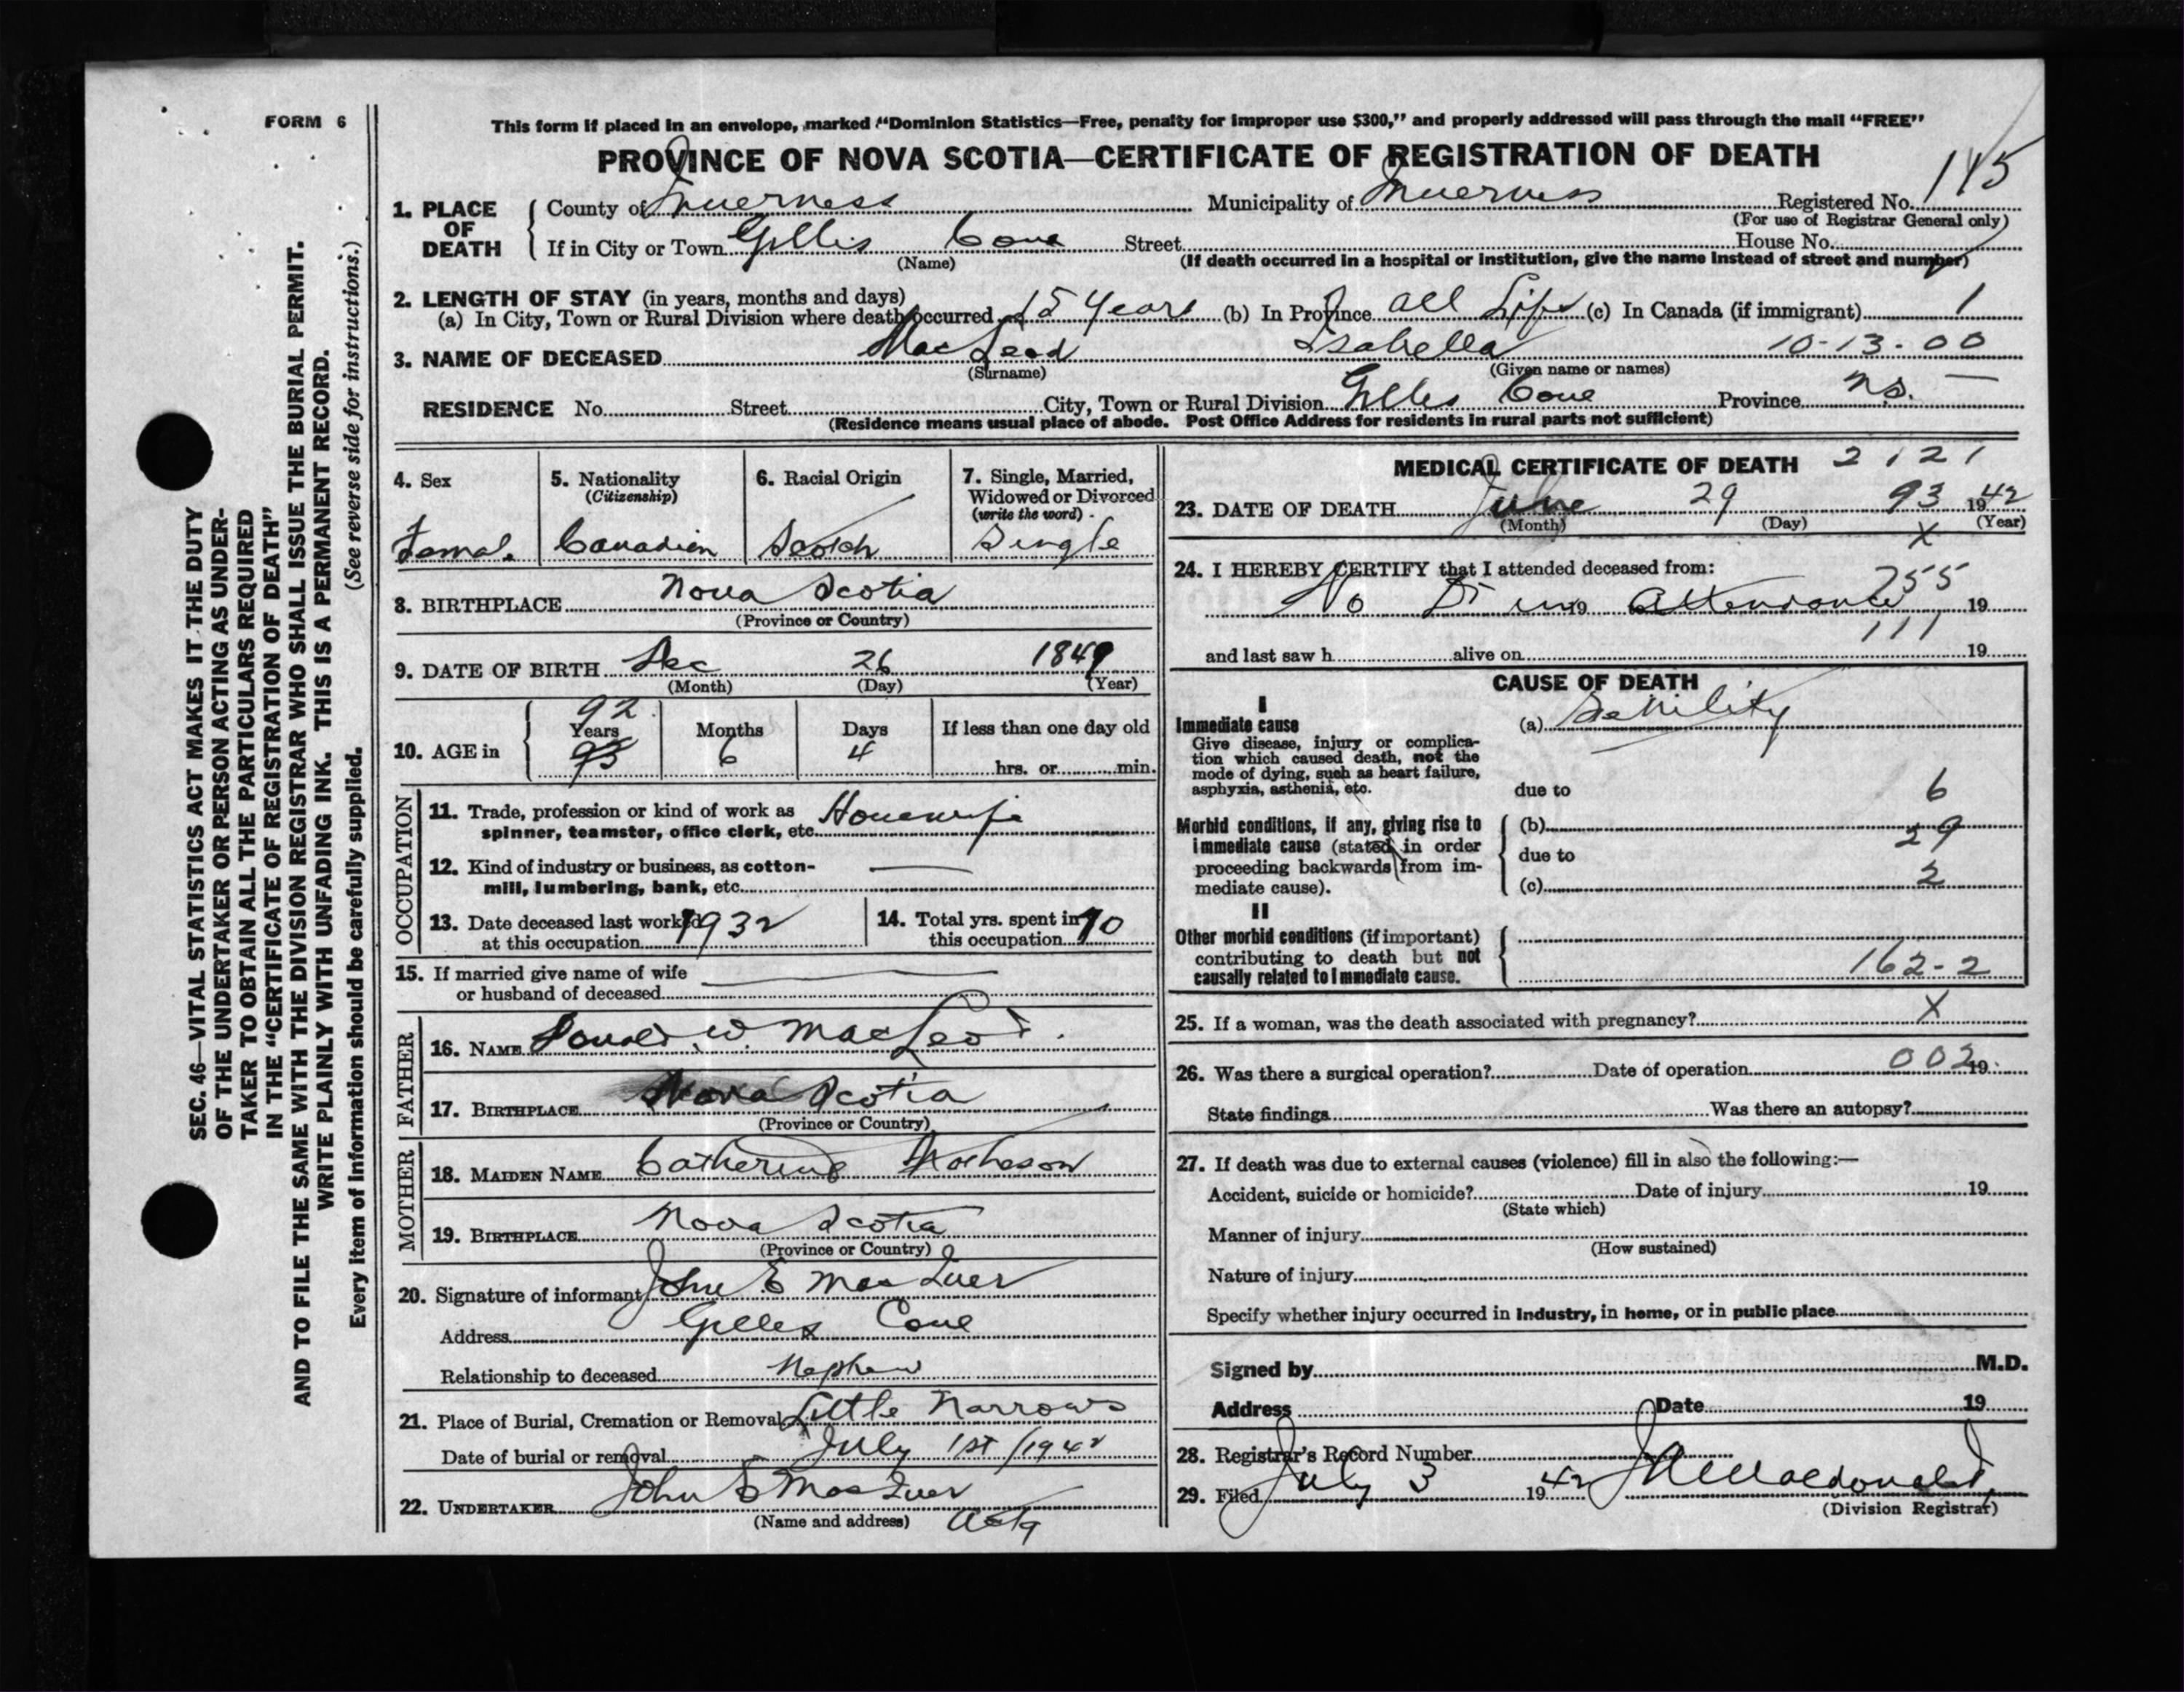 FORM 6
This form if placed in an envelope, marked “Dominion Statistics—Free, penalty for improper use $300,” and properly addressed will pass through the mail “FREE”
PROVINCE OF NOVA SCOTIA—CERTIFICATE OF REGISTRATION OF DEATH
145
1. PLACE OF DEATH
County of Inverness Municipality of Inverness Registered No.
(For use of Registrar General only)
If in City or Town Gillis Cove Street House No.
(Name) (If death occurred in a hospital or institution, give the name instead of street and number)
2. LENGTH OF STAY (in years, months and days)
(a) In City, Town or Rural Division where death occurred 15 Years (b) In Province all Life (c) In Canada (if immigrant) 1
3. NAME OF DECEASED MacLeod Isabella 10-13-00
(Surname) (Given name or names)
RESIDENCE No. Street City, Town or Rural Division Gilles Cove Province N.S. —
(Residence means usual place of abode. Post Office Address for residents in rural parts not sufficient)
4. Sex
Female
5. Nationality
(Citizenship)
Canadian
6. Racial Origin
Scotch
7. Single, Married,
Widowed or Divorced
(write the word)
Single
8. BIRTHPLACE Nova Scotia
(Province or Country)
9. DATE OF BIRTH Dec 26 1849
(Month) (Day) (Year)
10. AGE in
92
Years Months Days If less than one day old
93 6 4 hrs. or min.
OCCUPATION
11. Trade, profession or kind of work as
spinner, teamster, office clerk, etc. Housewife
12. Kind of industry or business, as cotton-
mill, lumbering, bank, etc. —
13. Date deceased last worked
at this occupation 1932
14. Total yrs. spent in
this occupation 70
15. If married give name of wife
or husband of deceased —
FATHER
16. NAME Donald W. MacLeod.
17. BIRTHPLACE Nova Scotia
(Province or Country)
MOTHER
18. MAIDEN NAME Catherine Matheson
19. BIRTHPLACE Nova Scotia
(Province or Country)
20. Signature of informant John E MacIver
Address Gilles Cove
Relationship to deceased Nephew
21. Place of Burial, Cremation or Removal Little Narrows
Date of burial or removal July 1st/1942
22. UNDERTAKER John E MacIver
(Name and address)
MEDICAL CERTIFICATE OF DEATH 2121
23. DATE OF DEATH June 29 93 1942
(Month) (Day) (Year)
X
24. I HEREBY CERTIFY that I attended deceased from:
255
No Dr in 19 attendance 19
111
and last saw h alive on 19
CAUSE OF DEATH
I
Immediate cause
Give disease, injury or complica-
tion which caused death, not the
mode of dying, such as heart failure,
asphyxia, asthenia, etc.
(a) Senility
due to 6
Morbid conditions, if any, giving rise to
immediate cause (stated in order
proceeding backwards from im-
mediate cause).
(b)
29
due to
(c) 2
II
Other morbid conditions (if important)
contributing to death but not
causally related to immediate cause.
162-2
25. If a woman, was the death associated with pregnancy? X
26. Was there a surgical operation? Date of operation 002 19
State findings Was there an autopsy?
27. If death was due to external causes (violence) fill in also the following:—
Accident, suicide or homicide? Date of injury 19
(State which)
Manner of injury
(How sustained)
Nature of injury
Specify whether injury occurred in industry, in home, or in public place
Signed by M.D.
Address Date 19
28. Registrar's Record Number
29. Filed July 3 1942 Macdonald
(Division Registrar)
SEC. 46—VITAL STATISTICS ACT MAKES IT THE DUTY
OF THE UNDERTAKER OR PERSON ACTING AS UNDER-
TAKER TO OBTAIN ALL THE PARTICULARS REQUIRED
IN THE “CERTIFICATE OF REGISTRATION OF DEATH”
AND TO FILE THE SAME WITH THE DIVISION REGISTRAR WHO SHALL ISSUE THE BURIAL PERMIT.
WRITE PLAINLY WITH UNFADING INK. THIS IS A PERMANENT RECORD.
Every item of information should be carefully supplied. (See reverse side for instructions.)